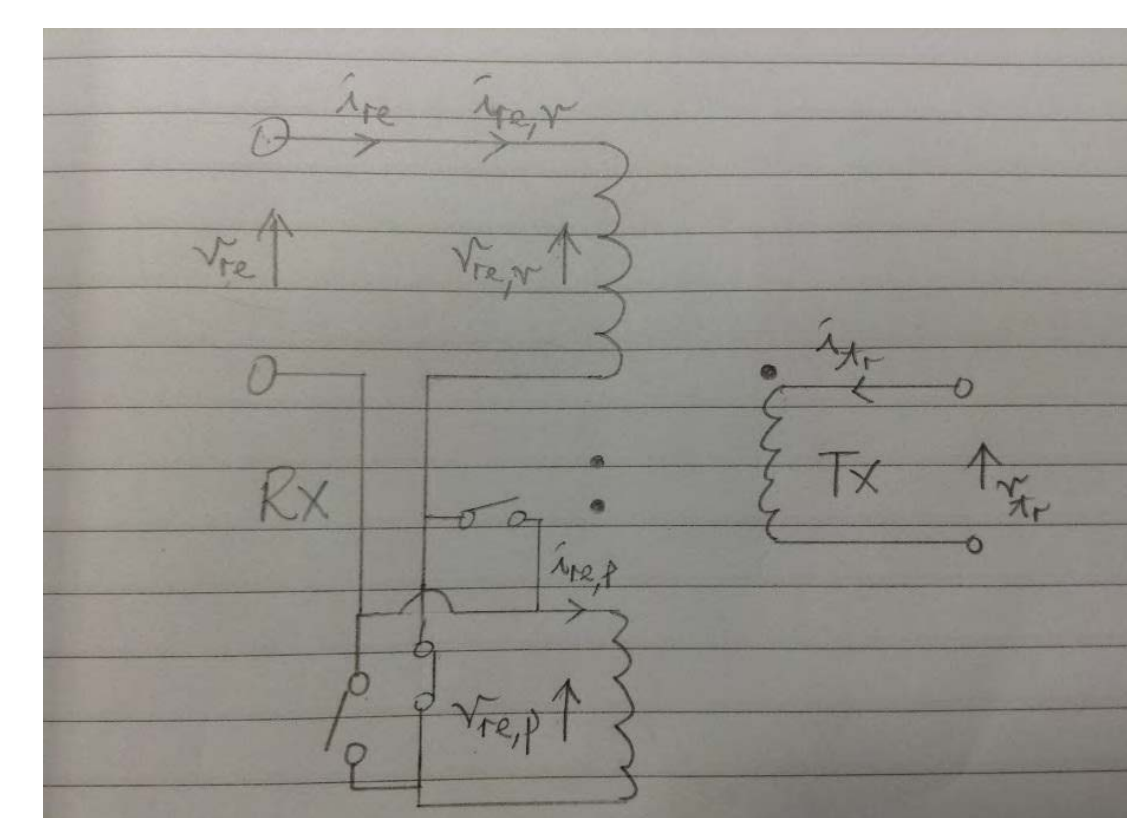 i_re i_re,r
v_re v_re,r
i_tr
Rx Tx v_tr
i_re,p
v_re,p